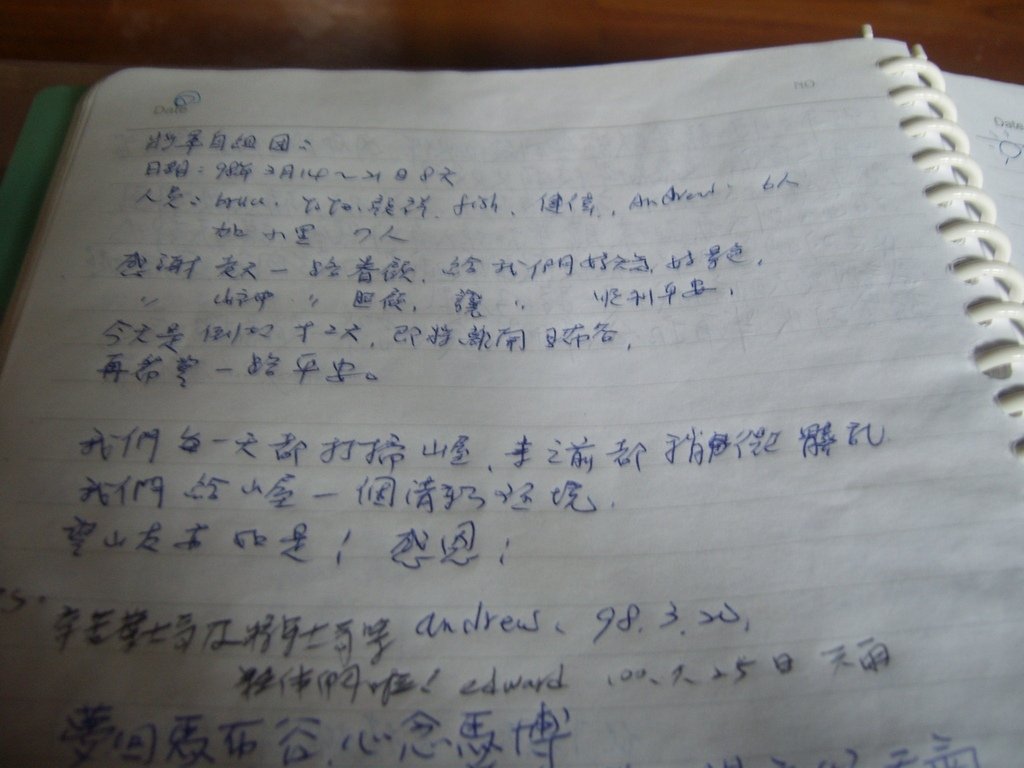 Date NO
Date
將軍自組團:
日期:98年3月14~21日8天
人員:bruce. ToTo. fish. 健偉, Andrew. 6人
加 7人
感謝老天一路眷顧, 給我們好天氣, 好景色,
" 山神 " 照顧, 讓 " 順利平安,
今天是倒數第2天, 即將離開馬布谷,
再希望一路平安。
我們每一天都打掃山屋, 來之前都稍微髒乱
我們給山屋一個清新環境,
望山友亦如是! 感恩!
andrew. 98.3.20,
辛苦 士哥及將軍士哥
edward 100.1.25日 天雨
夢回馬布谷, 心念馬博
天氣